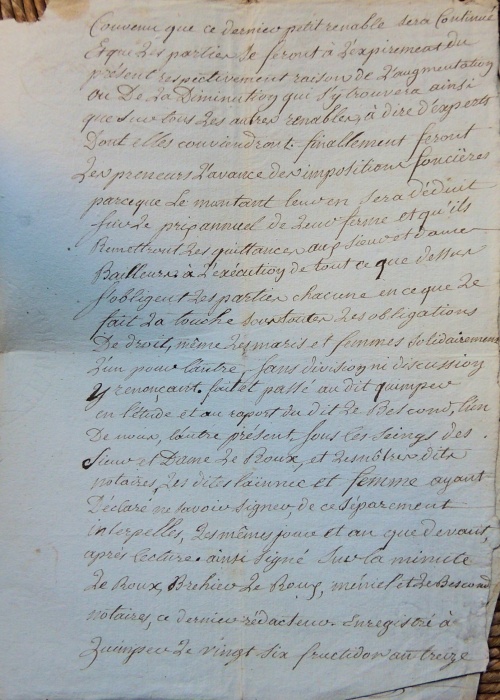 Convenu que ce dernier petit renable sera Continué
Et qui Les parties se feront à L'expirement du
présent respectivement raison de L'augmentation
ou De La Diminution qui s'y trouvera ainsi
que sur tous Les autres renables, à dire d'experts
Dont elles conviendront. finallement feront
Les preneurs L'avance des impositions foncières
parceque Le montant leur en sera déduit
sur Le prix annuel de Leur ferme et qu'ils
Remettront Les quittances aux Sieur et Dame
Bailleurs. à L'exécution de tout ce que dessus
s'obligent Les parties chacune en ce que Le
fait La touche sous toutes Les obligations
De droit, même Les maris et femmes solidairement
L'un pour L'autre, sans division ni discussion
y renonçant. fait et passé au dit quimper
en L'étude et au raport du dit Le Bescond, L'un
De nous, L'autre présent, sous Les seings des
Sieur et Dame Le Roux, et Les nôtres dits
notaires, Les dits et femme ayant
Déclaré ne savoir signer de ce séparement
interpellés, Les mêmes jour et an que devant,
après Lecture. ainsi signé sur La minute
Le Roux, Le Roux, et Le Bescond
notaires, ce dernier rédacteur. Enregistré à
Quimper Le vingt six fructidor an treize